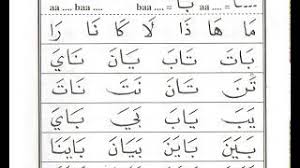 aa .... baa .... بَا = baa .... aa .... ـَـا
مَا هَا ذَا لَا كَا نَا رَا
بَاتَ تَابَ يَانَ نَايَ
تَنَ تَانَ نَتَ نَاتَ
يَبَ يَابَ بَيَ بَايَ
بَيَنَ بَايَنَ بَيَانَ بَايَنَا